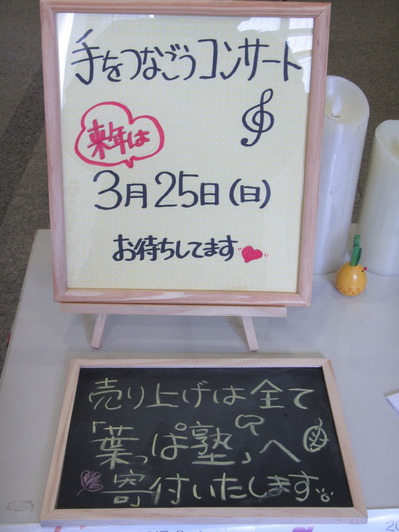 手をつなごうコンサート
来年は
3月25日(日)
お待ちしてます
売り上げは全て
「葉っぱ塾」へ
寄付いたします